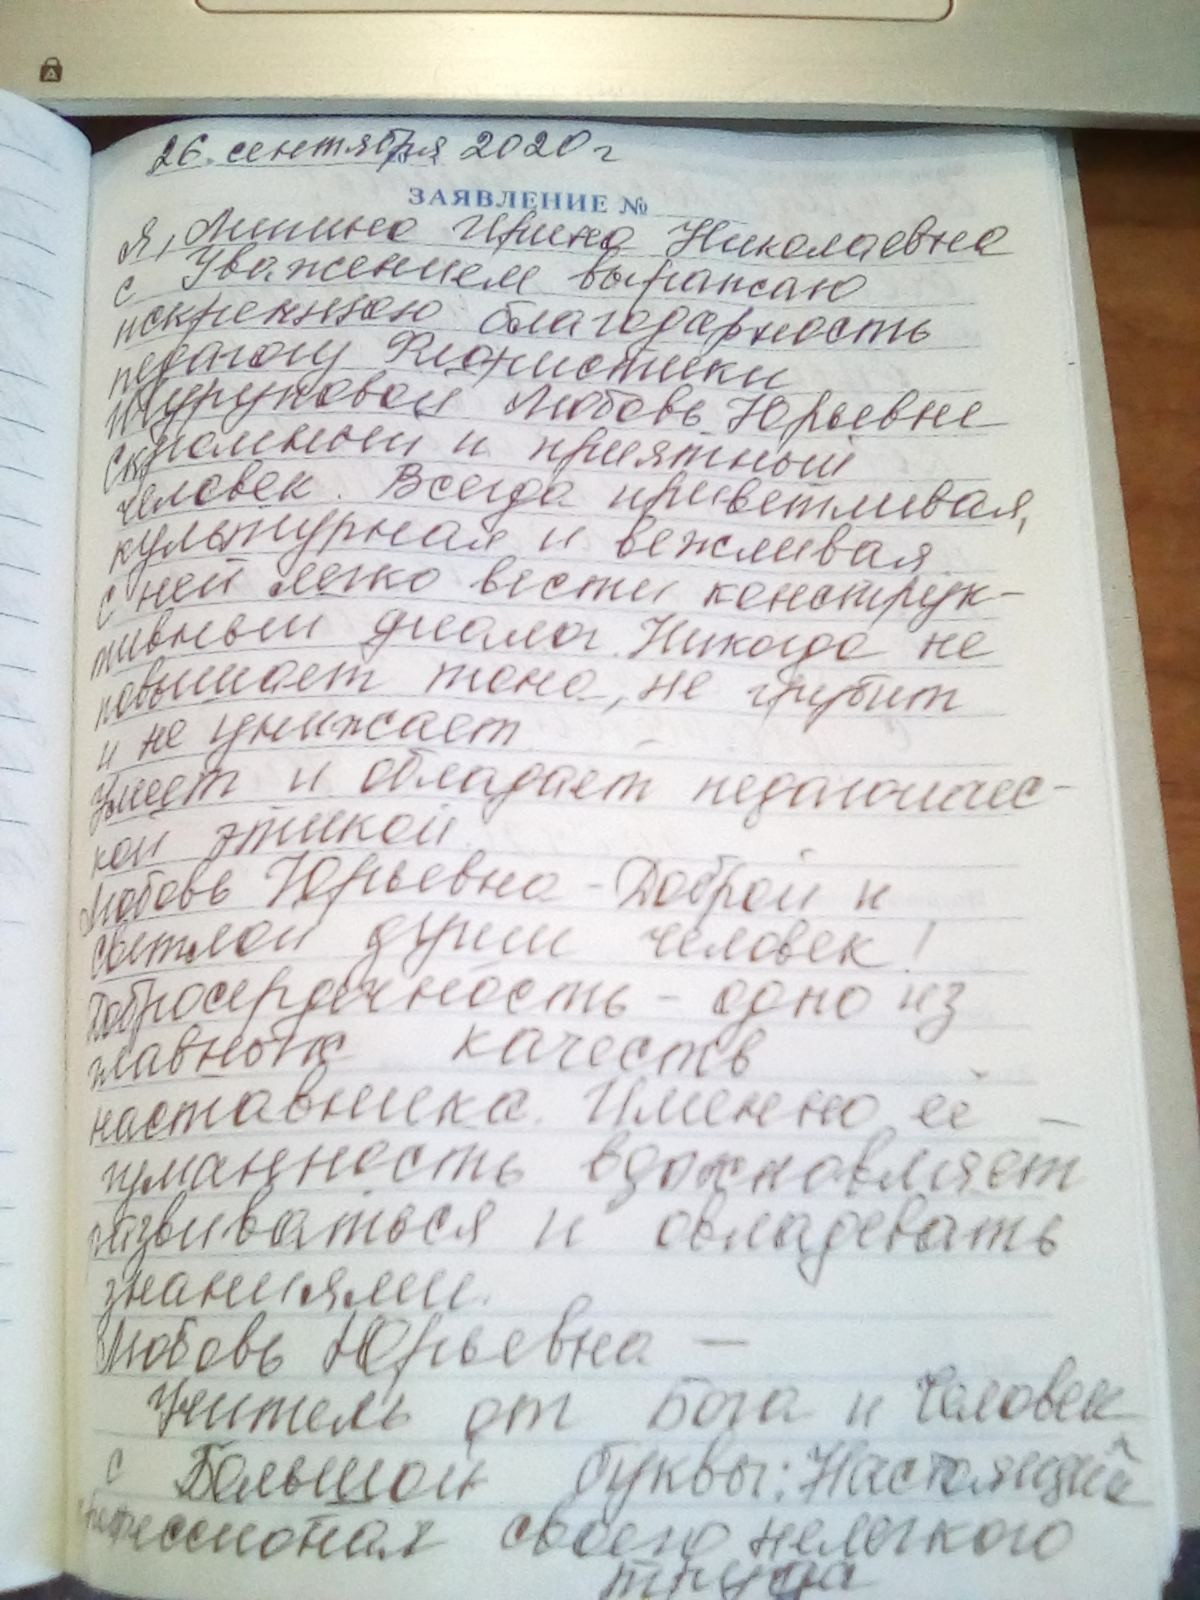 26. сентября 2020 г
ЗАЯВЛЕНИЕ №
Я, Ирина Николаевна
с Уважением выражаю
искреннюю благодарность
педагогу Флористики
Шуруповой Любовь Юрьевне
Скромный и приятный
человек. Всегда приветливая,
культурная и вежливая.
С ней легко вести конструк-
тивный диалог. Никогда не
повышает тона, не грубит
и не унижает
Умеет и обладает педагогичес-
кой этикой.
Любовь Юрьевна - Доброй и
светлой души человек!
Добросердечность - одно из
главных качеств
наставника. Именно её -
гуманность вдохновляет
развиваться и овладевать
знаниями.
Любовь Юрьевна —
Учитель от Бога и Человек
с Большой буквы: Настоящий
профессионал своего нелегкого
труда